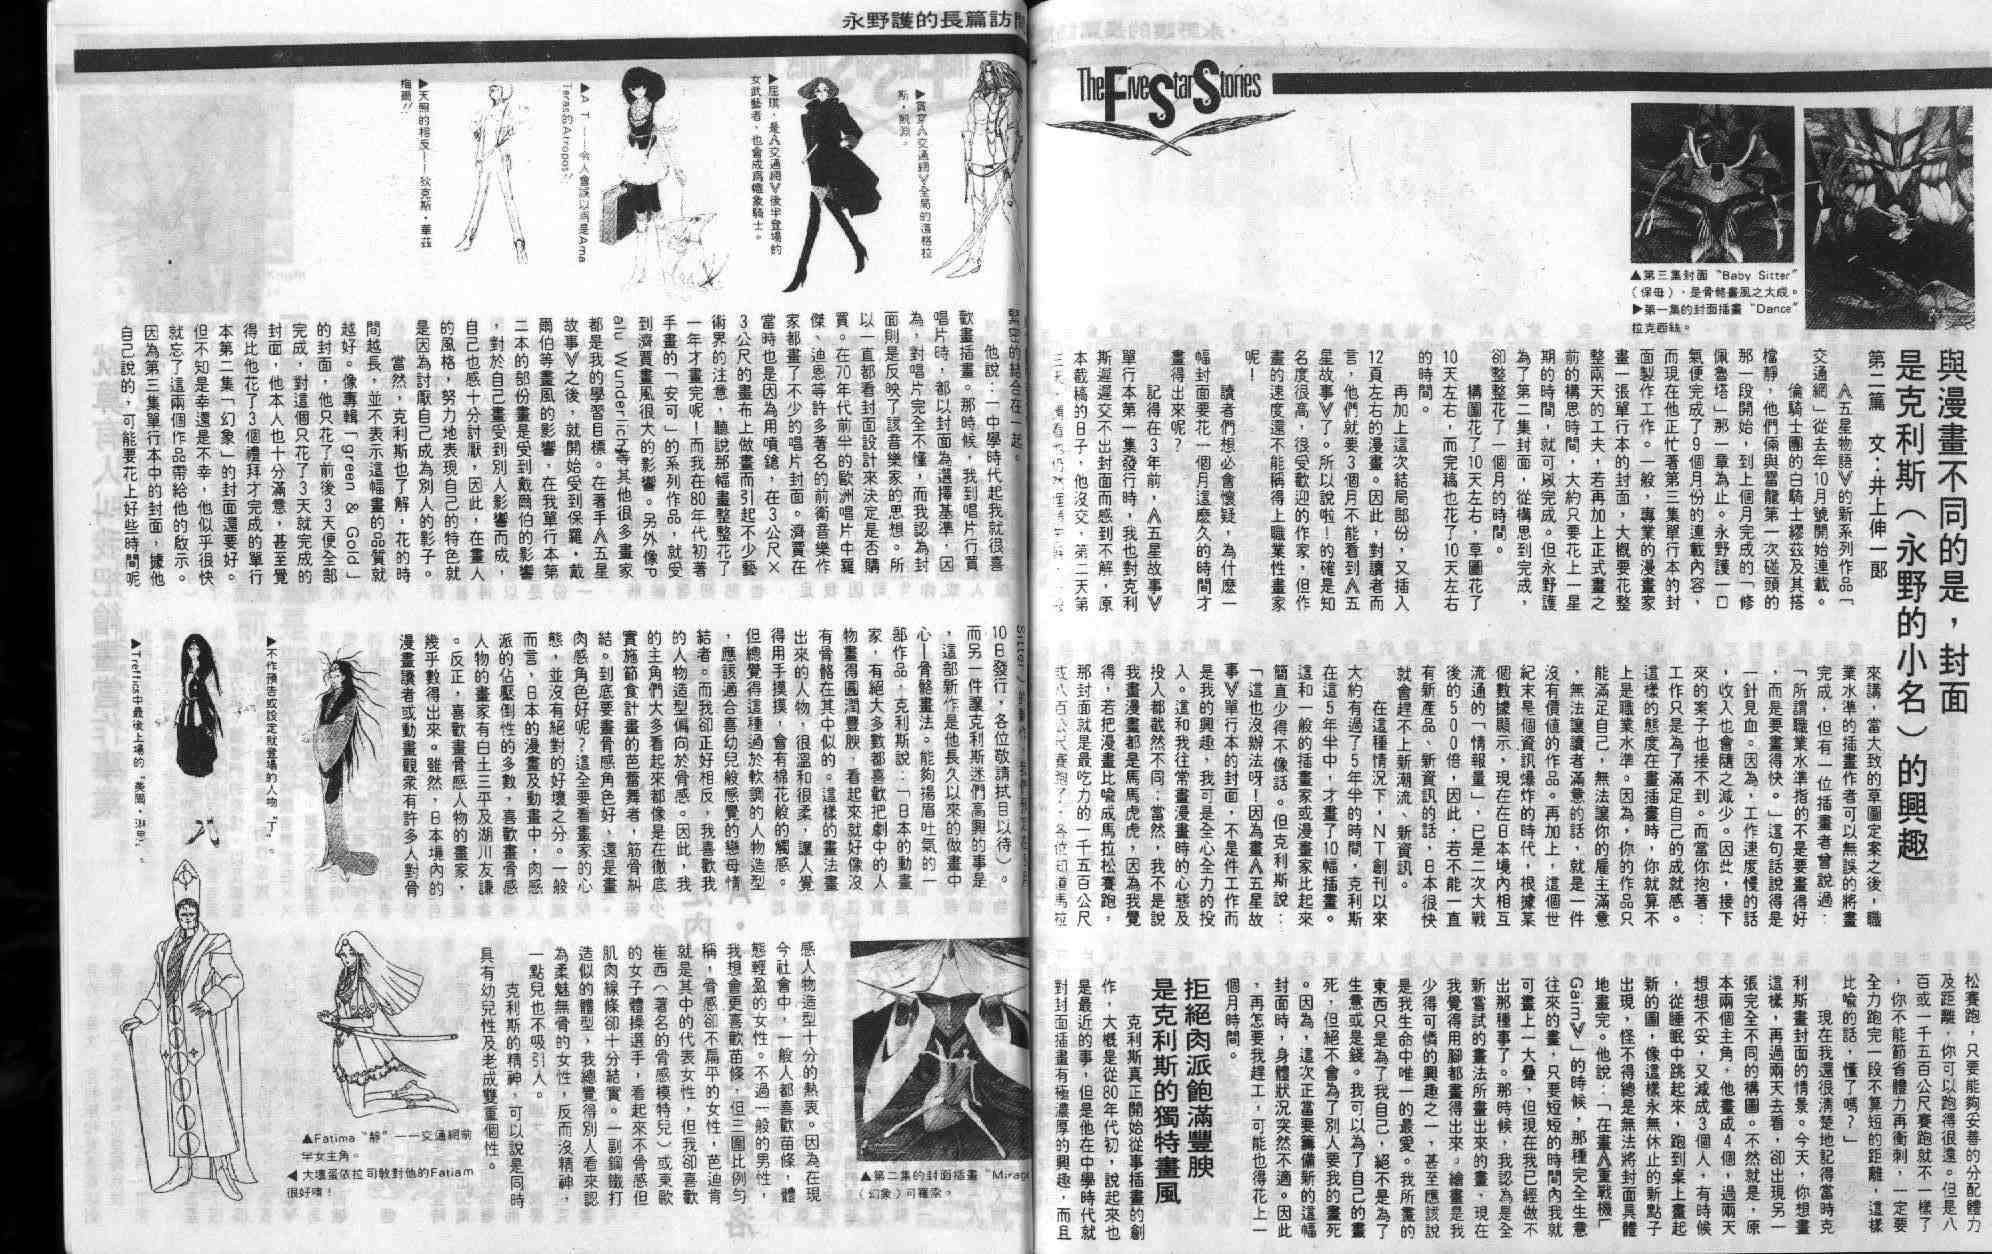 The Five Star Stories
▲第三集封面〝Baby Sitter〞
（保母），是骨骼畫風之大成。
▶第一集的封面插畫〝Dance〞
拉克西絲。
與漫畫不同的是，封面
是克利斯（永野的小名）的興趣
第二篇　文：井上伸一郎
《五星物語》的新系列作品「
交通網」從去年10月號開始連載。
倫騎士團的白騎士繆茲及其搭
檔靜，他們倆與雷龍第一次碰頭的
那一段開始，到上個月完成的「修
佩魯塔」那一章為止。永野護一口
氣便完成了9個月份的連載內容，
而現在他正忙著第三集單行本的封
面製作工作。一般，專業的漫畫家
畫一張單行本的封面，大概要花整
整兩天的工夫，若再加上正式畫之
前的構思時間，大約只要花上一星
期的時間，就可以完成。但永野護
為了第二集封面，從構思到完成，
卻整整花了一個月的時間。
構圖花了10天左右，草圖花了
10天左右，而完稿也花了10天左右
的時間。
再加上這次結局部份，又插入
12頁左右的漫畫。因此，對讀者而
言，他們就要3個月不能看到《五
星故事》了。所以說啦！的確是知
名度很高，很受歡迎的作家，但作
畫的速度還不能稱得上職業性畫家
呢！
讀者們想必會懷疑，為什麼一
幅封面要花一個月這麼久的時間才
畫得出來呢？
記得在3年前，《五星故事》
單行本第一集發行時，我也對克利
斯遲遲交不出封面而感到不解，原
本截稿的日子，他沒交，第二天第
來講，當大致的草圖定案之後，職
業水準的插畫作者可以無誤的將畫
完成，但有一位插畫者曾說過：
「所謂職業水準指的不是要畫得好
，而是要畫得快。」這句話說得是
一針見血。因為，工作速度慢的話
，收入也會隨之減少。因此，接下
來的案子也接不到。而當你抱著：
工作只是為了滿足自己的成就感。
這樣的態度在畫插畫時，你就算不
上是職業水準。因為，你的作品只
能滿足自己，無法讓你的雇主滿意
，無法讓讀者滿意的話，就是一件
沒有價值的作品。再加上，這個世
紀末是個資訊爆炸的時代，根據某
個數據顯示，現在在日本境內相互
流通的「情報量」，已是二次大戰
後的500倍，因此，若不能一直
有新產品、新資訊的話，日本很快
就會趕不上新潮流、新資訊。
在這種情況下，NT創刊以來
大約有過了5年半的時間，克利斯
在這5年半中，才畫了10幅插畫。
這和一般的插畫家或漫畫家比起來
簡直少得不像話。但克利斯說：
「這也沒辦法呀！因為畫《五星故
事》單行本的封面，不是件工作而
是我的興趣，我可是全心全力的投
入。這和我往常畫漫畫時的心態及
投入都截然不同；當然，我不是說
我畫漫畫都是馬馬虎虎，因為我覺
得，若把漫畫比喻成馬拉松賽跑，
那封面就是最吃力的一千五百公尺
松賽跑，只要能夠妥善的分配體力
及距離，你可以跑得很遠。但是八
百或一千五百公尺賽跑就不一樣了
，你不能節省體力再衝刺，一定要
全力跑完一段不算短的距離，這樣
比喻的話，懂了嗎？」
現在我還很清楚地記得當時克
利斯畫封面的情景。今天，你想畫
這樣，再過兩天去看，卻出現另一
張完全不同的構圖。不然就是，原
本兩個主角，他畫成4個，過兩天
想想不妥，又減成3個人，有時候
，從睡眠中跳起來，跑到桌上畫起
新的圖，像這樣永無休止的新點子
出現，怪不得總是無法將封面具體
地畫完。他說：「在畫《重戰機L
Gaim》」的時候，那種完全生意
往來的畫，只要短短的時間內我就
可畫上一大疊，但現在我已經做不
出那種事了。那時候，我認為是全
新嘗試的畫法所畫出來的畫，現在
我覺得用腳都畫得出來。繪畫是我
少得可憐的興趣之一，甚至應該說
是我生命中唯一的最愛。我所畫的
東西只是為了我自己，絕不是為了
生意或是錢。我可以為了自己的畫
死，但絕不會為了別人要我的畫死
。因為，這次正當要籌備新的這幅
封面時，身體狀況突然不適。因此
，再怎麼要我趕工，可能也得花上一
個月時間。
拒絕肉派飽滿豐腴
是克利斯的獨特畫風
克利斯真正開始從事插畫的創
作，大概是從80年代初，說起來也
是最近的事，但是他在中學時代就
對封面插畫有極濃厚的興趣，而且
永野護的長篇訪
▶貫穿《交通網》全局的道格拉
斯・凱淵。
▶屈琪，是《交通網》後半登場的
女武藝者，也會成為幟象騎士。
▲AT——令人會誤以為是Ama
Teras的Atropos？
▶天照的相反——狄克斯・華茲
梅爾！！
緊密的結合在一起。
他說：一中學時代起我就很喜
歡畫插畫。那時候，我到唱片行買
唱片時，都以封面為選擇基準，因
為，對唱片完全不懂，而我認為封
面則是反映了該音樂家的思想。所
以一直都看封面設計來決定是否購
買。在70年代前半的歐洲唱片中羅
傑、迪恩等許多著名的前衛音樂作
家都畫了不少的唱片封面。濟賈在
當時也是因為用噴鎗，在3公尺×
3公尺的畫布上做畫而引起不少藝
術界的注意，聽說那幅畫整整花了
一年才畫完呢！而我在80年代初著
手畫的「安可」的系列作品，就受
到濟賈畫風很大的影響。另外像P
alu Wunderlich等其他很多畫家
都是我的學習目標。在著手《五星
故事》之後，就開始受到保羅・戴
爾伯等畫風的影響，在我單行本第
二本的部份畫是受到戴爾伯的影響
，對於自己畫受到別人影響而成，
自己也感十分討厭，因此，在畫人
的風格，努力地表現自己的特色就
是因為討厭自己成為別人的影子。
當然，克利斯也了解，花的時
間越長，並不表示這幅畫的品質就
越好。像專輯「green & Gold」
的封面，他只花了前後3天便全部
完成，對這個只花了3天就完成的
封面，他本人也十分滿意，甚至覺
得比他花了3個禮拜才完成的單行
本第二集「幻象」的封面還要好。
但不知是幸還是不幸，他似乎很快
就忘了這兩個作品帶給他的啟示。
因為第三集單行本中的封面，據他
自己說的，可能要花上好些時間呢
10日發行，各位敬請拭目以待）。
而另一件讓克利斯迷們高興的事是
，這部新作是他長久以來的做畫中
心—骨骼畫法。能夠揚眉吐氣的一
部作品，克利斯說：「日本的動畫
家，有絕大多數都喜歡把劇中的人
物畫得圓潤豐腴，看起來就好像沒
有骨骼在其中似的。這樣的畫法畫
出來的人物，很溫和很柔，讓人覺
得用手摸摸，會有棉花般的觸感。
但總覺得這種過於軟調的人物造型
，應該適合喜幼兒般感覺的戀母情
結者。而我卻正好相反，我喜歡我
的人物造型偏向於骨感。因此，我
的主角們大多看起來都像是在徹底
實施節食計畫的芭蕾舞者，筋骨糾
結。到底要畫骨感角色好，還是畫
肉感角色好呢？這全要看畫家的心
態，並沒有絕對的好壞之分。一般
而言，日本的漫畫及動畫中，肉感
派的佔壓倒性的多數，喜歡畫骨感
人物的畫家有白土三平及湖川友謙
。反正，喜歡畫骨感人物的畫家，
幾乎數得出來。雖然，日本境內的
漫畫讀者或動畫觀眾有許多人對骨
▶不作預告或設定就登場的人物〝丁〞。
▶Treffics中最後上場的〝美國，浩思〞。
▲第二集的封面插畫〝Mirage
（幻象）可羅索。
感人物造型十分的熱衷。因為在現
今社會中，一般人都喜歡苗條，體
態輕盈的女性。不過一般的男性，
我想會更喜歡苗條，但三圍比例勻
稱，骨感卻不扁平的女性，芭迪肯
就是其中的代表女性，但我卻喜歡
崔西（著名的骨感模特兒）或東歐
的女子體操選手，看起來不骨感但
肌肉線條卻十分結實。一副鋼鐵打
造似的體型，我總覺得別人看來認
為柔魅無骨的女性，反而沒精神，
一點兒也不吸引人。
克利斯的精神，可以說是同時
具有幼兒性及老成雙重個性。
▲Fatima〝靜〞——交通網前
半女主角。
◀大壞蛋依拉司敎對他的Fatiam
很好唷！